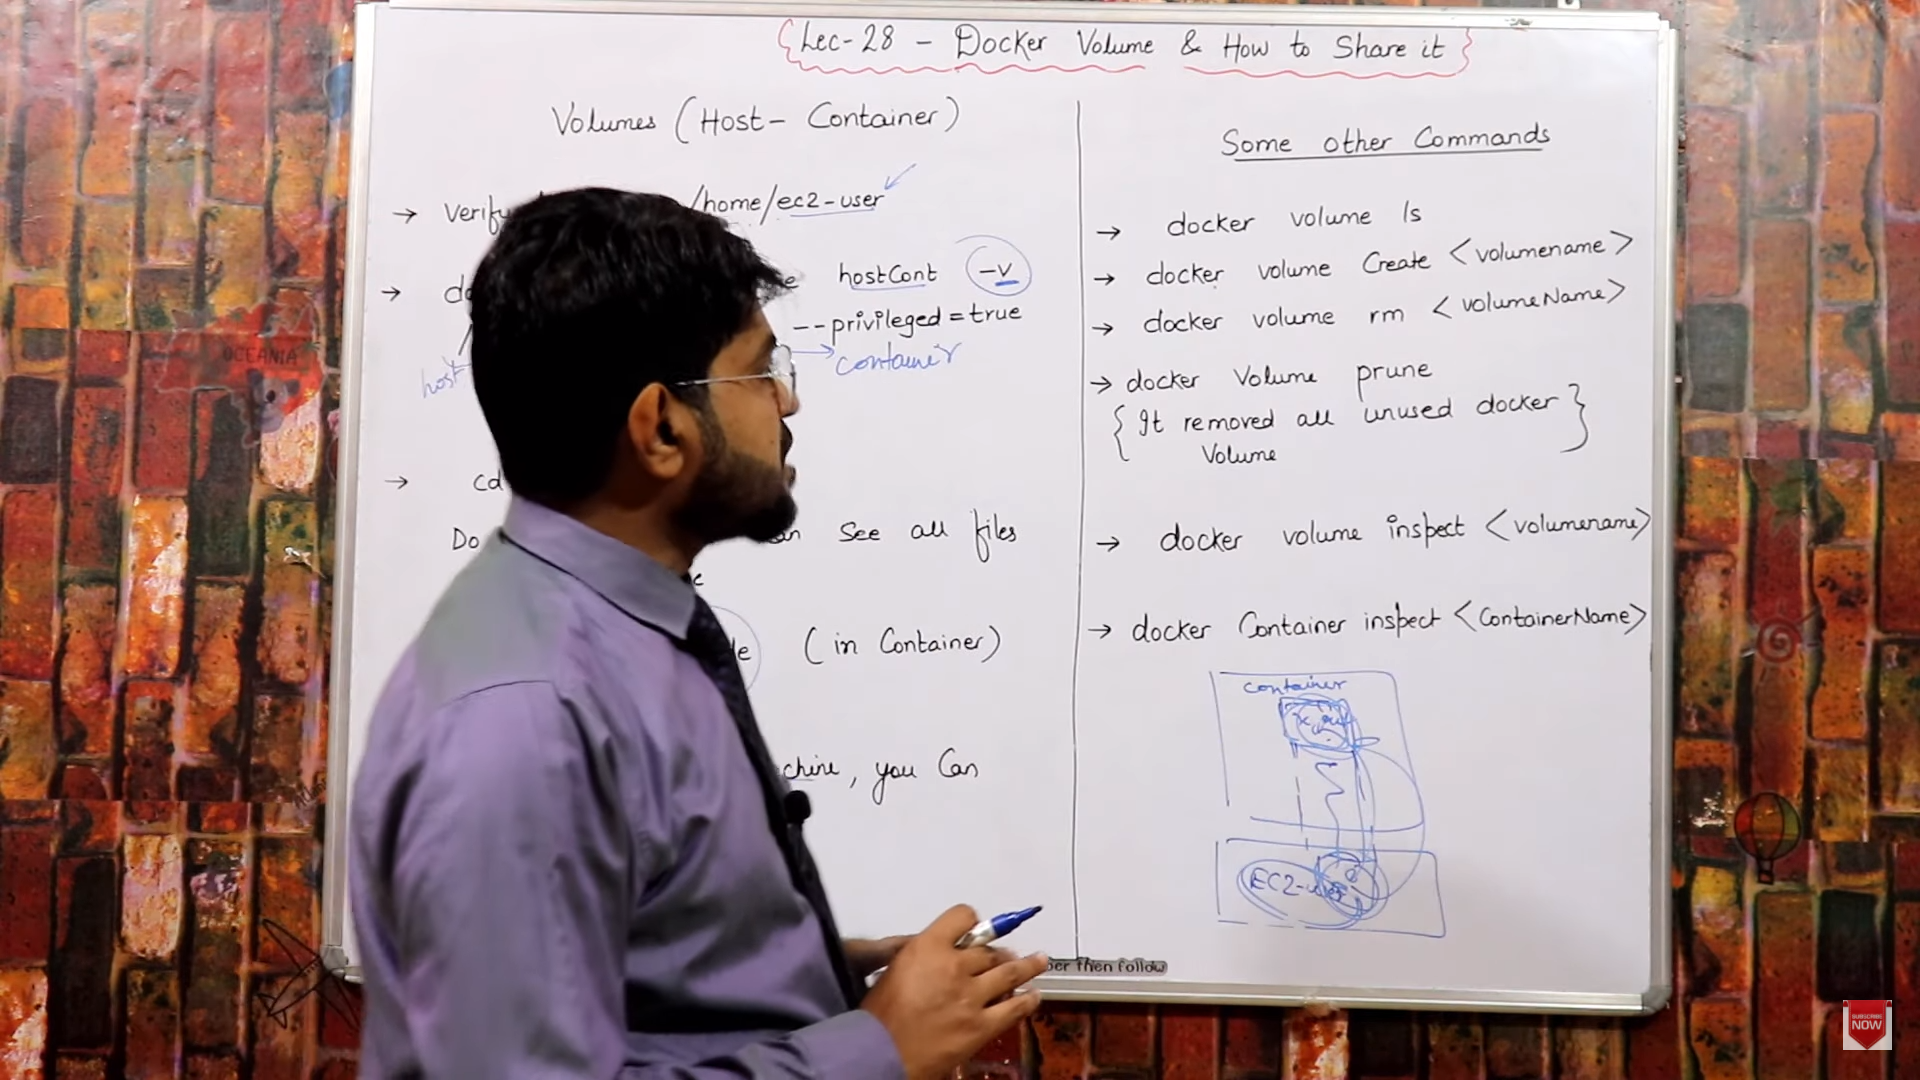 Lec-28 - Docker Volume & How to Share it
Volumes (Host- Container)
→ verify /home/ec2-user
→ hostCont -v
--privileged=true
host → container
→ cd
Do See all files
(in Container)
chine, you Can
Some other Commands
→ docker volume ls
→ docker volume Create <volumename>
→ docker volume rm <volumeName>
→ docker Volume prune
{It removed all unused docker
Volume}
→ docker volume inspect <volumename>
→ docker Container inspect <ContainerName>
container
EC2-user
then follow
OCEANIA
SUBSCRIBE
NOW